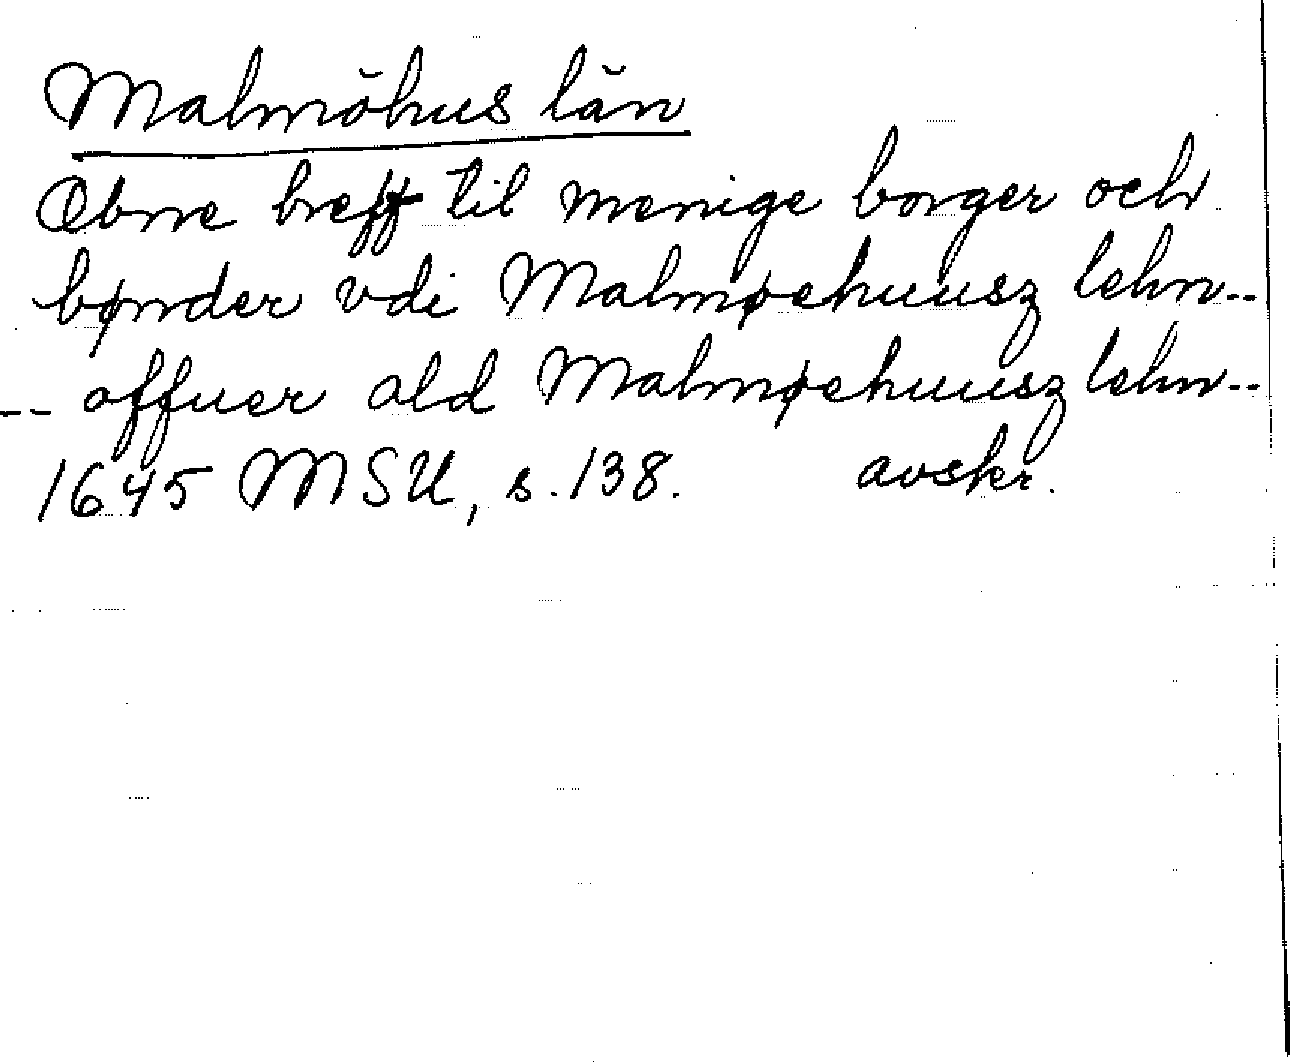 Malmöhus län
Obne breff til menige borger och
bønder vdi Malmøehuusz lehn--
-- offuer ald Malmøehuusz lehn--
1645 MSU, s. 138. avskr.